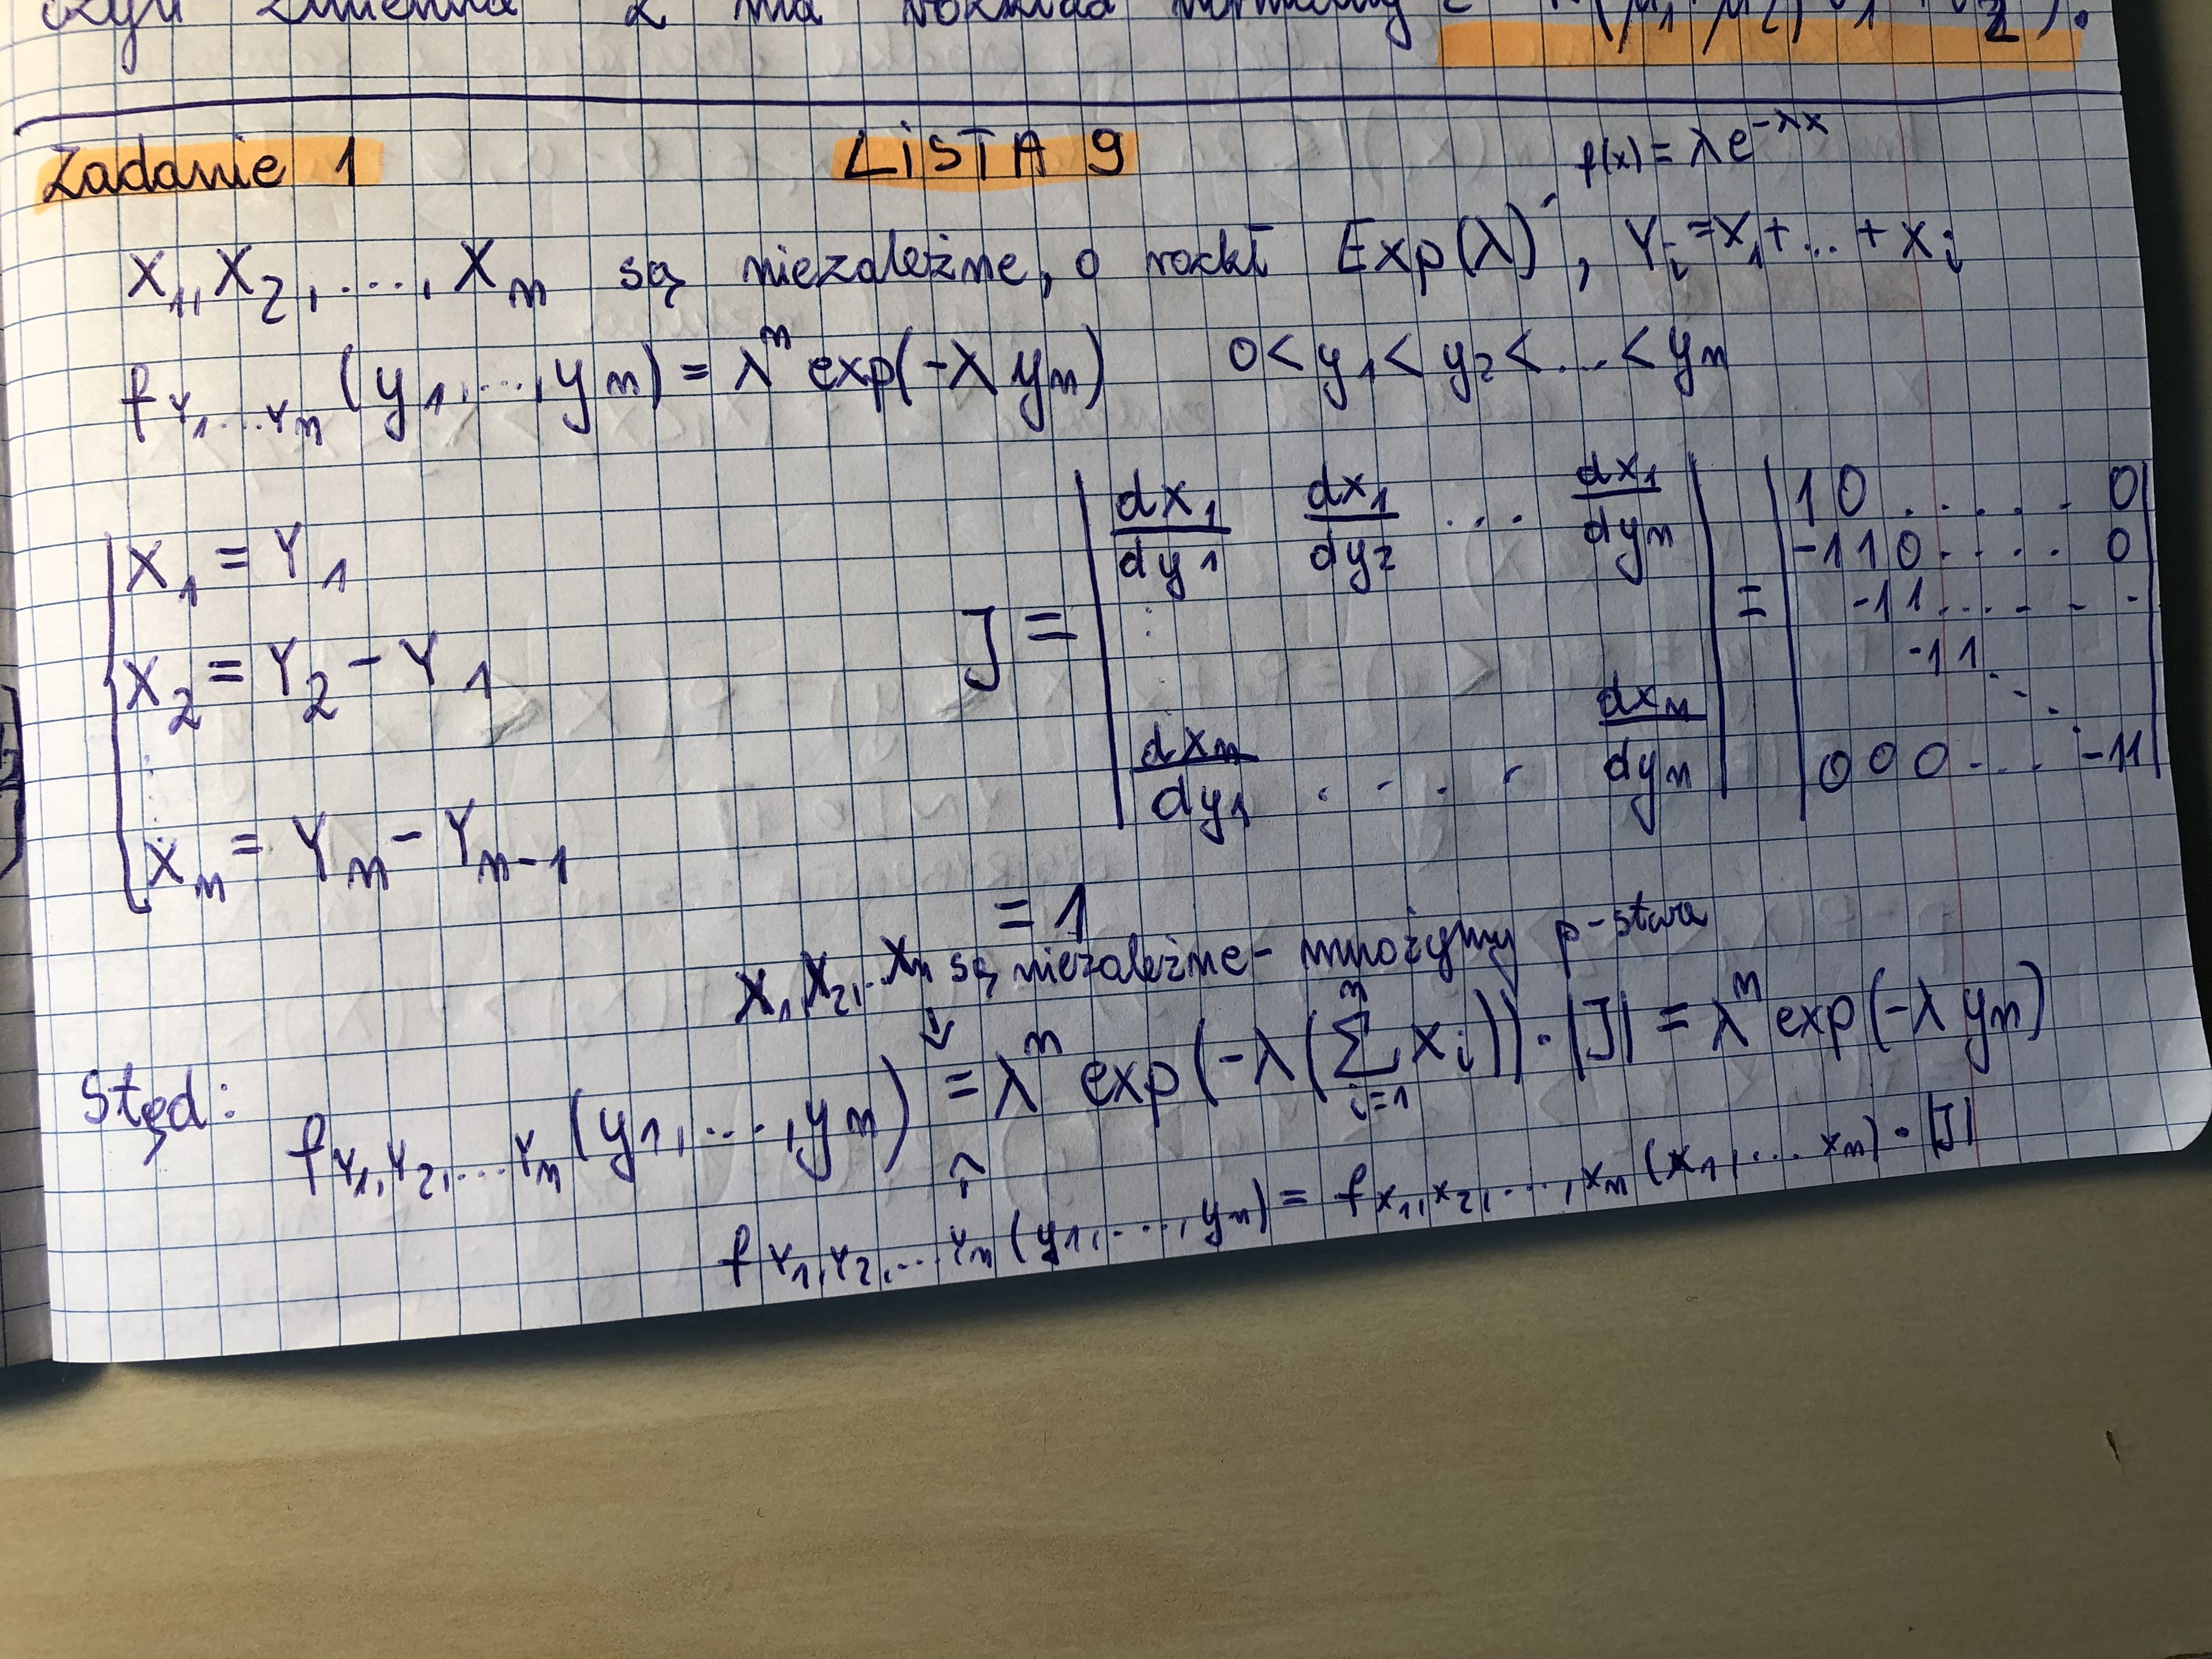 zmienna Z ma rozkład normalny
Zadanie 1 LISTA 9 f(x) = λe^{-λx}
X₁, X₂, ..., Xₙ są niezależne, o rozkł Exp(λ), Yᵢ = X₁ + ... + Xᵢ
f_{Y₁...Yₙ}(y₁, ..., yₙ) = λⁿ exp(-λ yₙ) 0 < y₁ < y₂ < ... < yₙ
X₁ = Y₁
X₂ = Y₂ - Y₁
⋮
Xₙ = Yₙ - Yₙ₋₁
J = | dx₁/dy₁ dx₁/dy₂ ... dx₁/dyₙ | = | 1 0 ..... 0 |
| ⋮ | | -1 1 0 .... 0 |
| -1 1 ...... |
| -1 1 ⋱ |
| dxₙ/dy₁ .... dxₙ/dyₙ | | 0 0 0 ... -1 1 |
= 1
X₁, X₂, .. Xₙ są niezależne - mnożymy p-stwa
↓
Stąd: f_{Y₁,Y₂,...Yₙ}(y₁, ..., yₙ) = λⁿ exp(-λ(∑_{i=1}^{n} xᵢ)) · |J| = λⁿ exp(-λ yₙ)
↑
f_{Y₁,Y₂,...Yₙ}(y₁, ..., yₙ) = f_{X₁,X₂,...,Xₙ}(x₁, ... xₙ) · |J|